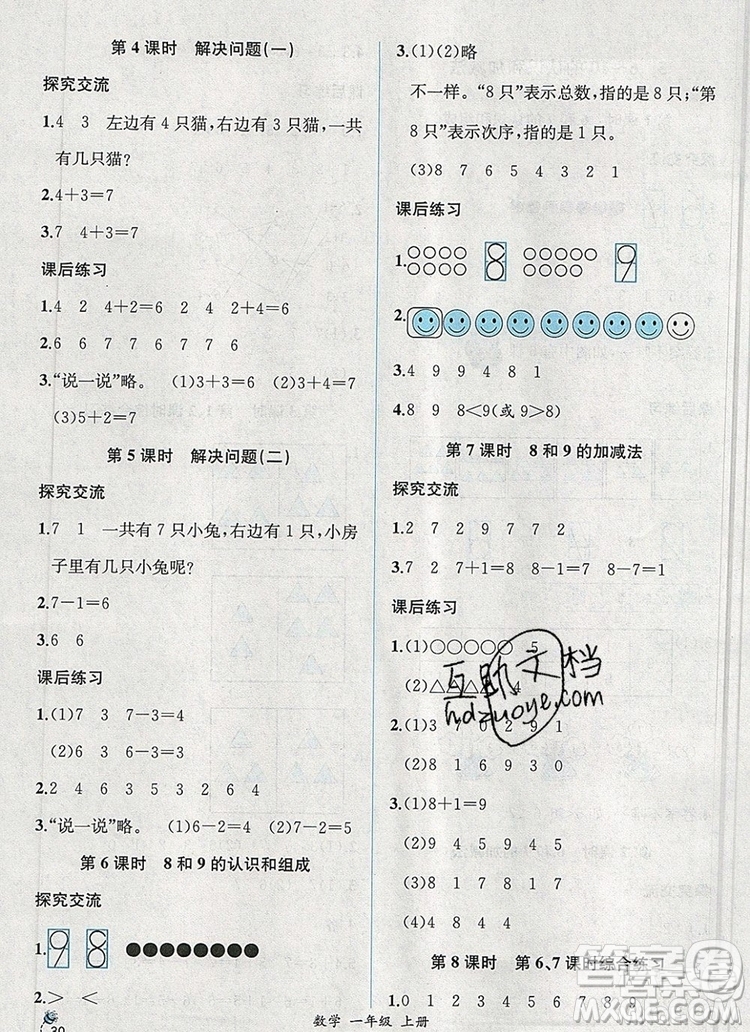 第4课时 解决问题(一)
探究交流
1.4 3 左边有4只猫,右边有3只猫,一共
有几只猫?
2.4+3=7
3.7 4+3=7
课后练习
1.4 2 4+2=6
2.6 7 6 7 7 6
3.“说一说”略。 (1)3+3=6 (2)3+4=7
(3)5+2=7
第5课时 解决问题(二)
探究交流
1.7 1 一共有7只小兔,右边有1只,小房
子里有几只小兔呢?
2.7-1=6
3.6 6
课后练习
1.(1)7 3 7-3=4
(2)6 3 6-3=3
2.4 5 6 3 5 3 2 6 4
3.“说一说”略。 (1)6-2=4 (2)7-2=5
第6课时 8和9的认识和组成
探究交流
1. 9 8
2.> <
3.(1)(2)略
不一样。“8只”表示总数,指的是8只;“第
8只”表示次序,指的是1只。
(3)8 7 6 5 4 3 2 1
课后练习
1. 8 9
2.
3.4 9 9 4 8 1
4.8 9 8<9(或9>8)
第7课时 8和9的加减法
探究交流
1.2 7 2 9 7 7 2
3.7 7+1=8 8 8-1=7
课后练习
1.(1)○○○○○ 5
(2)△△△ 4
2.(1)3 7 7 0 2 9 1
(2)8 1 6 9 3 0
3.(1)8+1=9
(2)9 2 7 9 4 5
(3)1 7 8 1 7 8
(4)4 8 4 4
第8课时 第6、7课时综合练习
1.0 1 2 3 4 5 6 7 8 9
30
数学 一年级 上册
互助文档
hdzuoye.com
答案圈